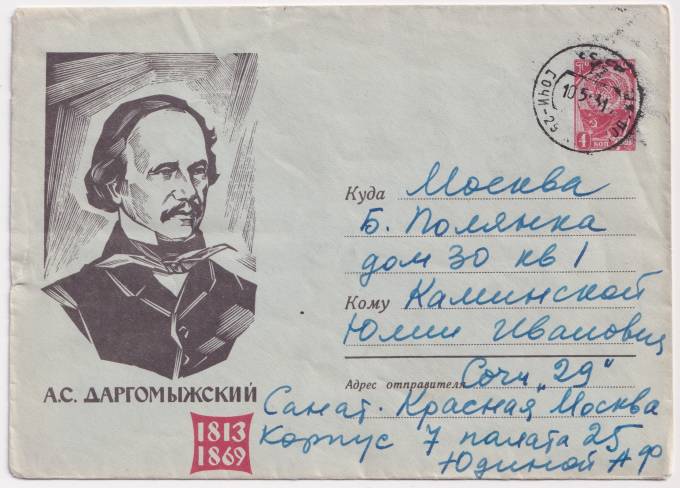 СОЧИ-29
10 5
4 КОП
Куда Москва
Б. Полянка
дом 30 кв 1
Кому Каминской
Юлии Ивановн
Адрес отправителя Сочи „29"
Санат. Красная Москва
Корпус 7 палата 25
Юдиной А Ф
А.С. ДАРГОМЫЖСКИЙ
1813
1869